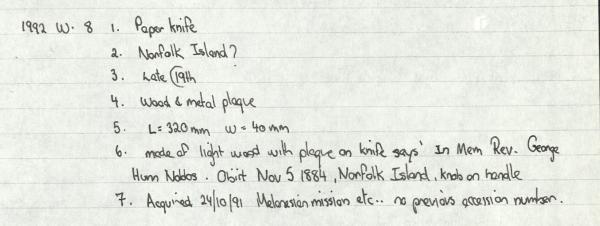 1992 W. 8 1. Paper knife
2. Norfolk Island?
3. Late 19th
4. Wood & metal plaque
5. L = 320mm W = 40mm
6. made of light wood with plaque on knife says' In Mem Rev. George
Hunn Nobbs. Obiit Nov 5 1884, Norfolk Island, knob on handle
7. Acquired 24/10/91 Melanesian mission etc.. no previous accession number.